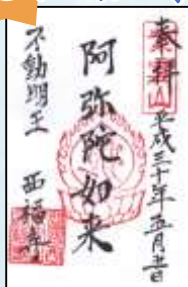 奉拝 平成三十年五月吉日
阿弥陀如来
不動明王 西福寺